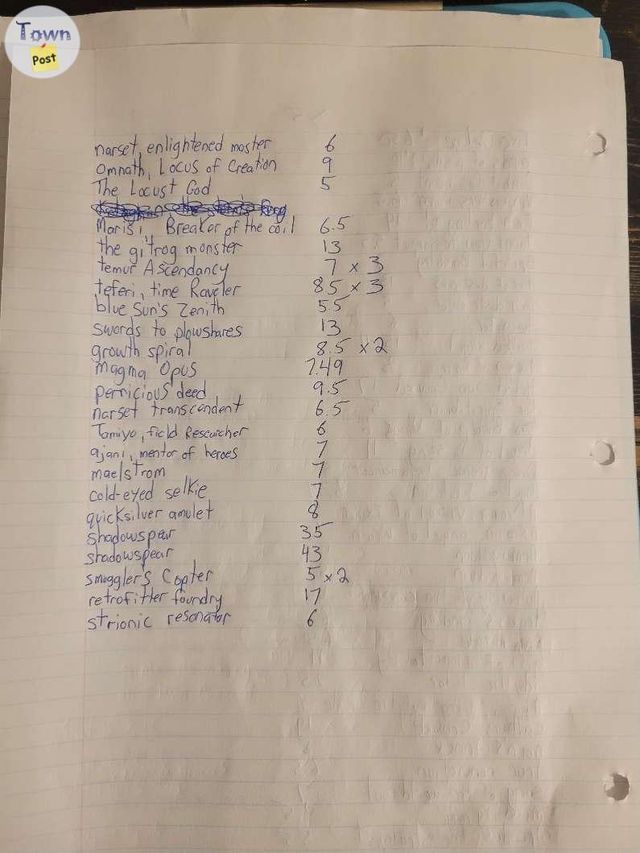 Town
Post
narset, enlightened master 6
Omnath, Locus of Creation 9
The Locust God 5
Marisi, Breaker of the coil 6.5
the gitrog monster 13
temur Ascendancy 7 x 3
teferi, time Raveler 8.5 x 3
blue Sun's Zenith 5.5
swords to plowshares 13
growth spiral 8.5 x 2
Magma Opus 7.49
pernicious deed 9.5
narset transcendent 6.5
Tamiyo, field Researcher 6
ajani, mentor of heroes 7
maelstrom 7
cold-eyed selkie 7
quicksilver amulet 8
Shadowspear 35
shadowspear 43
smuggler's Copter 5 x 2
retrofitter foundry 17
strionic resonator 6